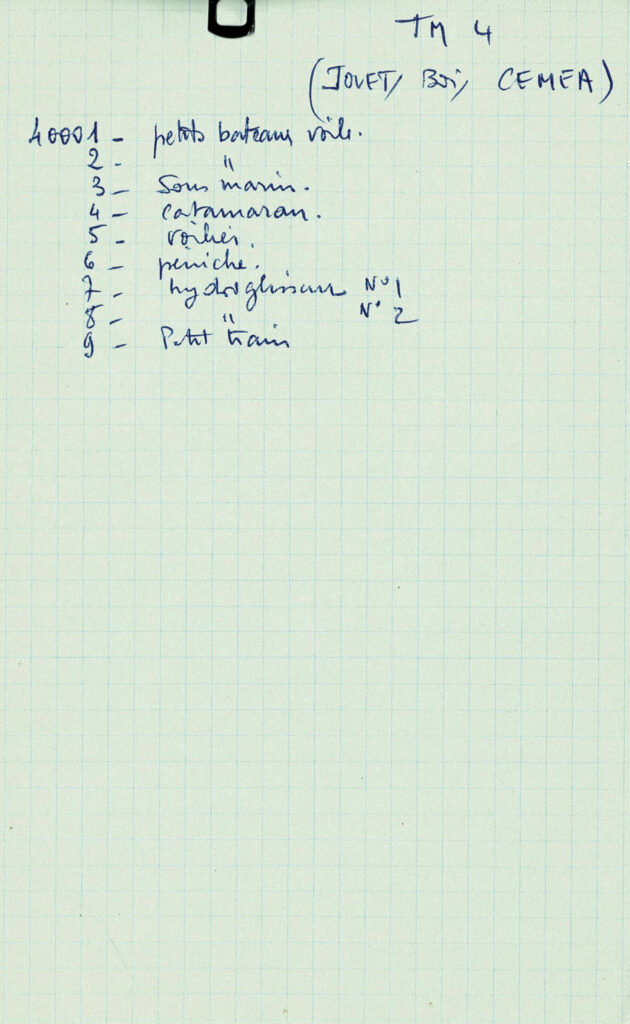 TM 4
(JOUET/ Bois/ CEMEA)
40001 - petits bateaux voile.
2 - "
3 - Sous marin.
4 - catamaran.
5 - voilier.
6 - péniche.
7 - hydroglisseur N° 1
8 - " N° 2
9 - Petit train